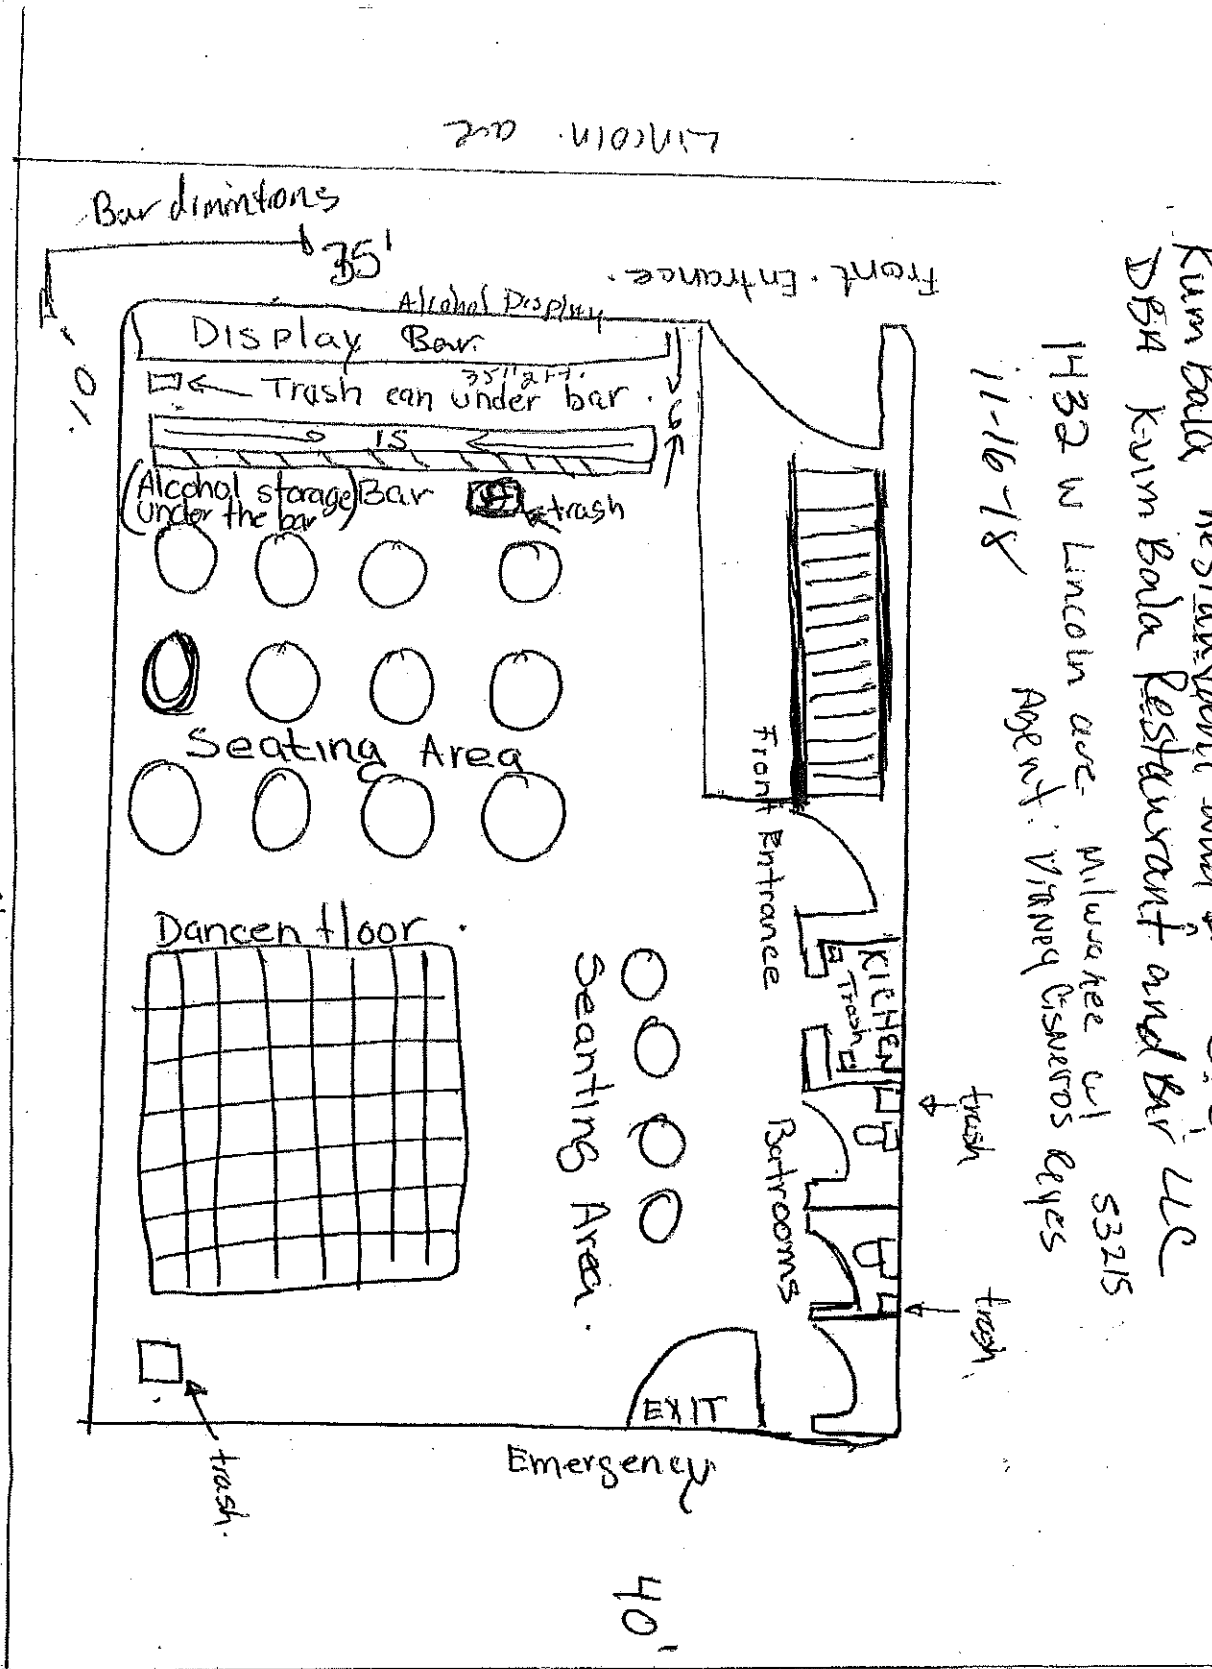 Lincoln ave
Bar dimintions
35'
Front Entrance.
Alcohol Display
Display Bar.
Trash can under bar.
6
15
(Alcohol storage
under the bar)
Bar
trash
Seating Area
Front Entrance
Dancen floor
Seanting Area.
KICHEN
Trash
Batrooms
trash
trash
EXIT
Emergency
trash.
40'
Kum Bala
DBA Kuim Bala Restaurant and Bar LLC
1432 W Lincoln ave Milwaukee wi 53215
11-16-18
Agent: Vianey Cisneros Reyes